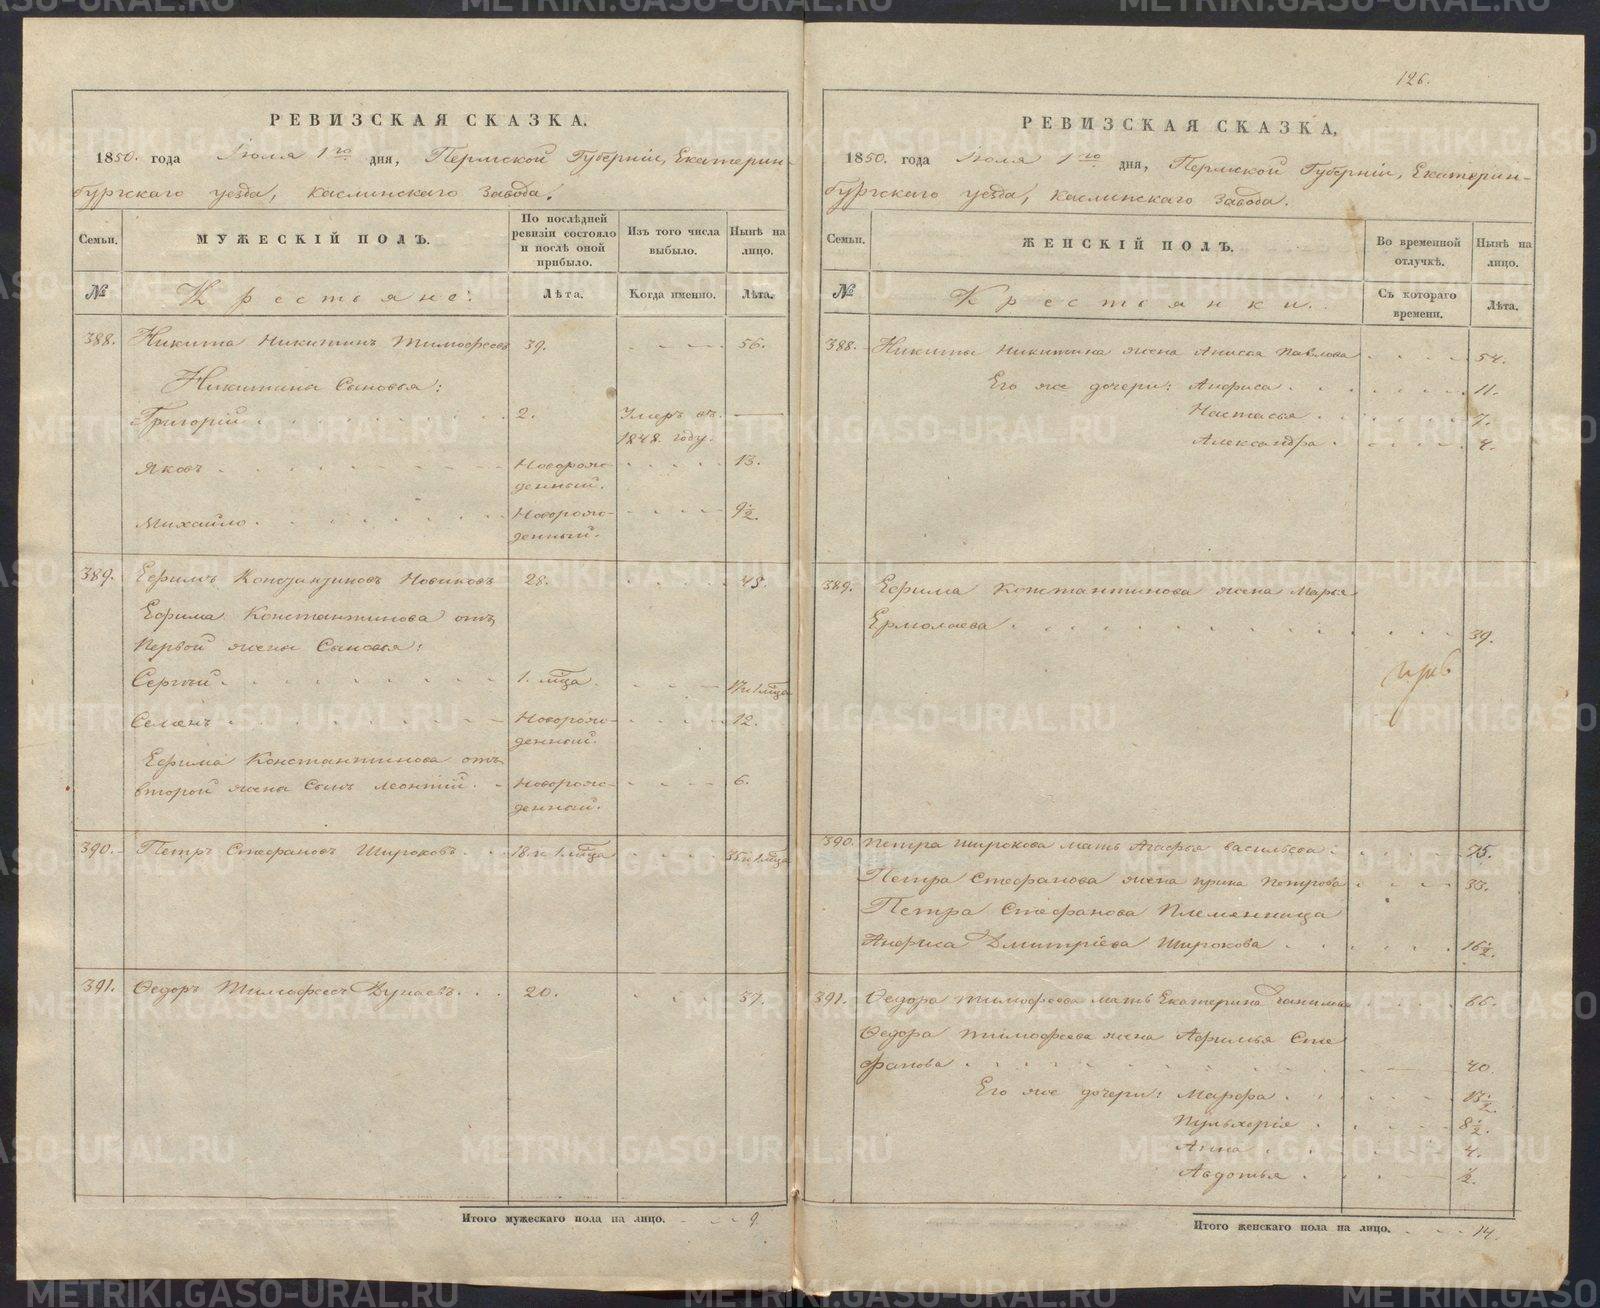 126.
РЕВИЗСКАЯ СКАЗКА.
1850. года Іюля 1го дня, Пермской Губерніи, Екатерин-
бургскаго уезда, Каслинскаго Завода.
Семьи.
МУЖЕСКІЙ ПОЛЪ.
По послѣдней ревизіи состояло и послѣ оной прибыло.
Изъ того числа выбыло.
Нынѣ на лицо.
№
Крестьяне:
Лѣта.
Когда именно.
Лѣта.
388. Никита Никитинъ Тимофеевъ 39. 56.
Никитины Сыновья:
Григорій 2. Умеръ въ
1848. году.
Яковъ Новорож- 13.
денный.
Михайло Новорож- 9½.
денный.
389. Ефимъ Константиновъ Новиковъ 28. 45.
Ефима Константинова отъ
Первой жены Сыновья:
Сергѣй 1. мца 17 и 1 мца
Семенъ Новорож- 12.
денный.
Ефима Константинова отъ
второй жены Сынъ Леонтій. Новорож- 6.
денный.
390. Петръ Стефановъ Широковъ 18. и 1. мца 35 и 1 мца
391. Ѳедоръ Тимофеевъ Дунаевъ 20. 37.
Итого мужескаго пола на лицо. 9.
РЕВИЗСКАЯ СКАЗКА,
1850. года Іюля 1го дня, Пермской Губерніи, Екатерин-
бургскаго уезда, Каслинскаго Завода.
Семьи.
ЖЕНСКІЙ ПОЛЪ.
Во временной отлучкѣ.
Нынѣ на лицо.
№
Крестьянки.
Съ котораго времени.
Лѣта.
388. Никиты Никитина жена Анисья Павлова 54.
Его же дочери: Анфиса 11.
Настасья 7.
Александра 4.
389. Ефима Константинова жена Марья
Ермолаева 39.
390. Петра Широкова мать Агафья Васильева 75.
Петра Стефанова жена Ирина Петрова 33.
Петра Стефанова Племянница
Анфиса Дмитріева Широкова 16½.
391. Ѳедора Тимофеева мать Екатерина Данилова 66.
Ѳедора Тимофеева жена Афимья Сте
фанова 40.
Его же дочери: Марфа 13½.
Пульхерія 8½.
Анна 4.
Авдотья ½.
Итого женскаго пола на лицо. 14.
METRIKI.GASO-URAL.RU